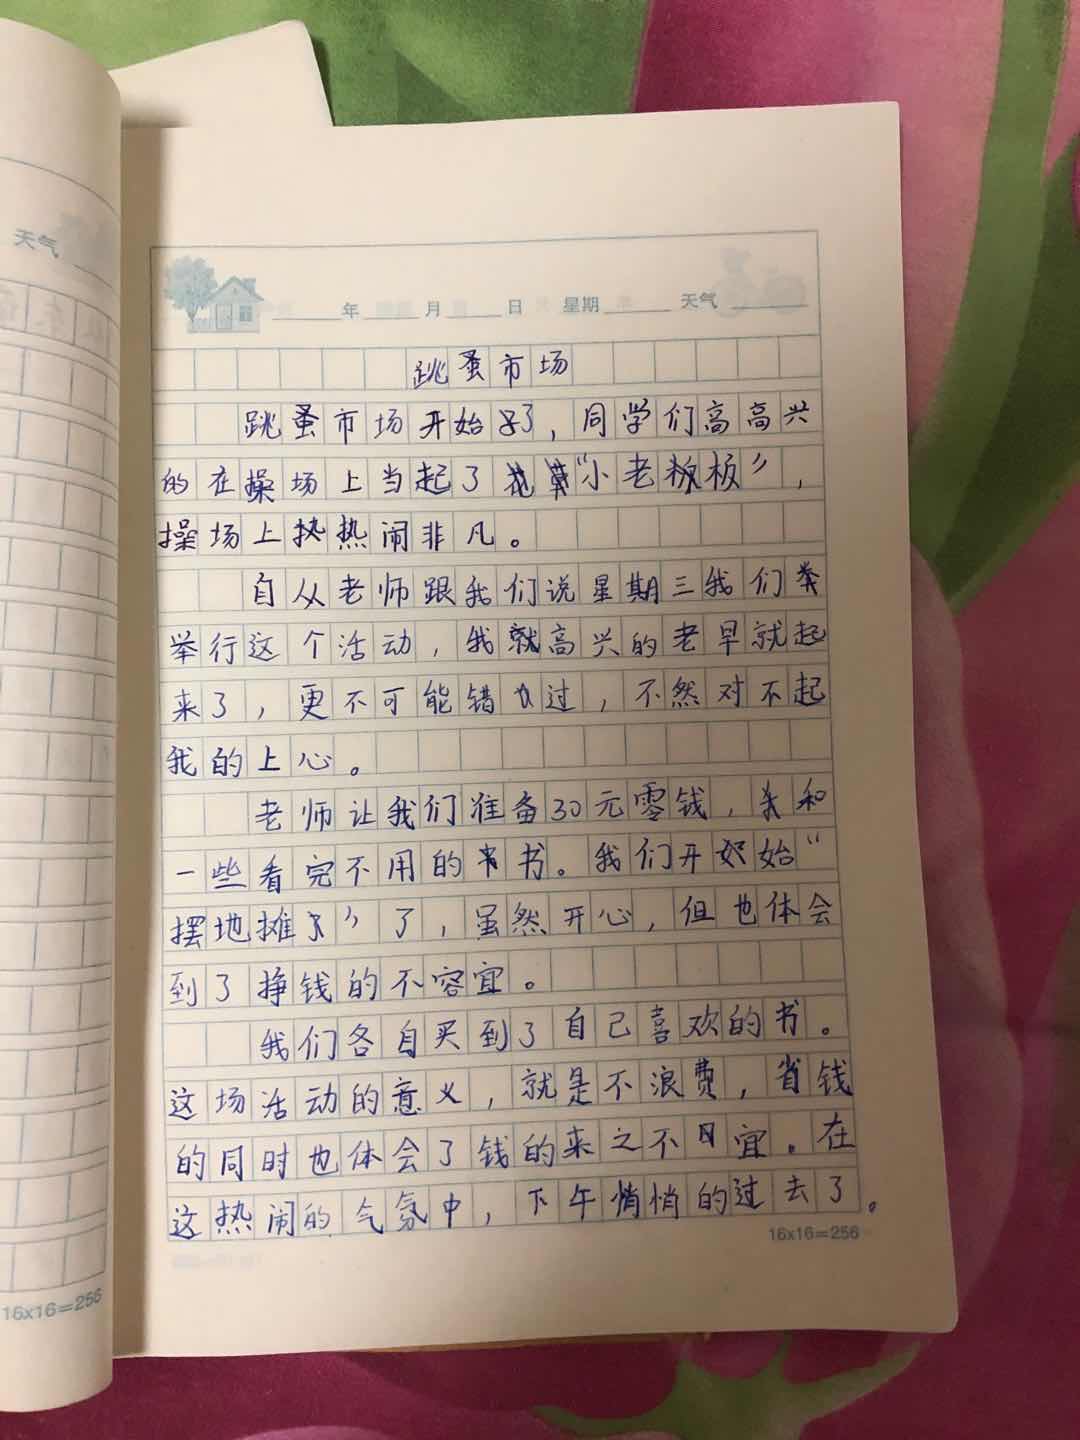 天气
年 月 日 星期 天气
跳蚤市场
跳蚤市场开始了，同学们高高兴
的在操场上当起了“小老板”，
操场上热闹非凡。
自从老师跟我们说星期三我们
举行这个活动，我就高兴的老早就起
来了，更不可能错过，不然对不起
我的上心。
老师让我们准备30元零钱，和
一些看完不用的书。我们开始“
摆地摊”了，虽然开心，但也体会
到了挣钱的不容宜。
我们各自买到了自己喜欢的书。
这场活动的意义，就是不浪费，省钱
的同时也体会了钱的来之不宜。在
这热闹的气氛中，下午悄悄的过去了。
16x16=256
16x16=256